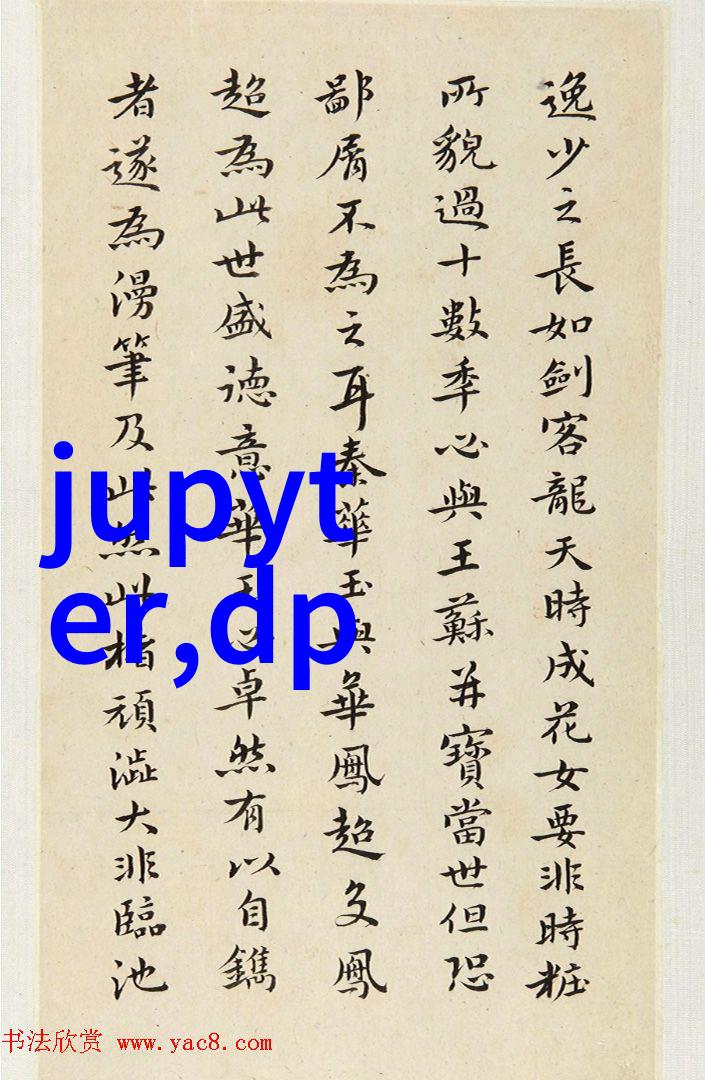 逸少之長如劍客龍天時成花女要非時粧
所貌過十數季必與王蘇并寶當世但恐
鄙屑不為之耳秦華玉與華鳳超文鳳
超為此世盛德意華玉必卓然有以自鐫
者遂為漫筆及此然此楮頑澁大非臨池
jupyt
er,dp
书法欣赏 www.yac8.com